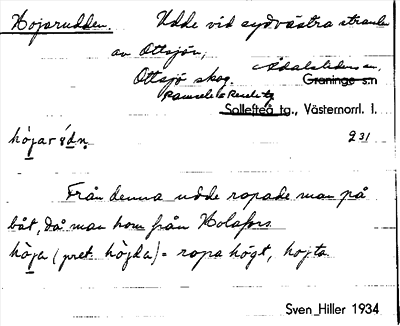 Hojarudden. Udde vid sydvästra stranden
av Ottsjön,
Ottsjö skog. Ådalsliden sn.
Graninge s:n
Ramsele & Resele tg
Sollefteå tg., Västernorrl. l.
231
Från denna udde ropade man på
båt, då man kom från Holafors.
(pret. hòjda) = ropa högt, hojta
Sven Hiller 1934